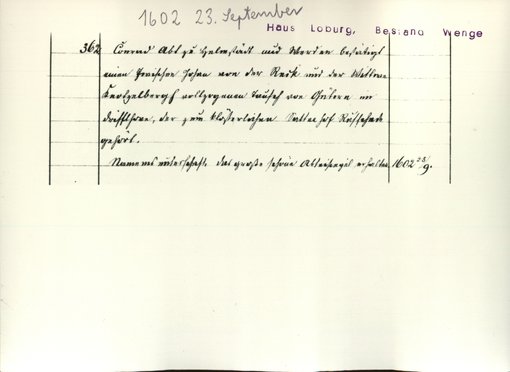 1602 23. September
Haus Loburg, Bestand Wenge
362 Conrad Abt zu Helmstädt und Werden bestätigt
einen zwischen Johan von der Reck und der Wittwe
vollzogenen Tausch von Gütern im
, der zum klösterlichen Sattelhof
gehört.
Namensunterschrift, das große schöne Abteisiegel erhalten. 1602 23/9.